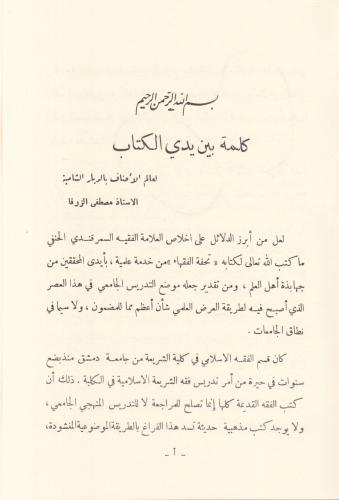 بسم الله الرحمن الرحيم
كلمة بين يدي الكتاب
لعالم الأحناف بالديار الشامية
الاستاذ مصطفى الزرقا
لعل من أبرز الدلائل على اخلاص العلامة الفقيه السمرقندي الحنفي
ما كتب الله تعالى لكتابه « تحفة الفقهاء » من خدمة علمية ، بأيدى المحققين من
جهابذة أهل العلم ، ومن تقدير جعله موضع التدريس الجامعي في هذا العصر
الذي أصبح فيه لطريقة العرض العلمي شأن أعظم مما للمضمون ، ولا سيما في
نطاق الجامعات .
كان قسم الفقه الاسلامي في كلية الشريعة من جامعة دمشق منذ بضع
سنوات في حيرة من أمر تدريس فقه الشريعة الاسلامية في الكلية . ذلك أن
كتب الفقه القديمة كلها إنما تصلح للمراجعة لا للتدريس المنهجي الجامعي ،
ولا يوجد كتب مذهبية حديثة تسد هذا الفراغ بالطريقة الموضوعية المنشودة ،
- آ -